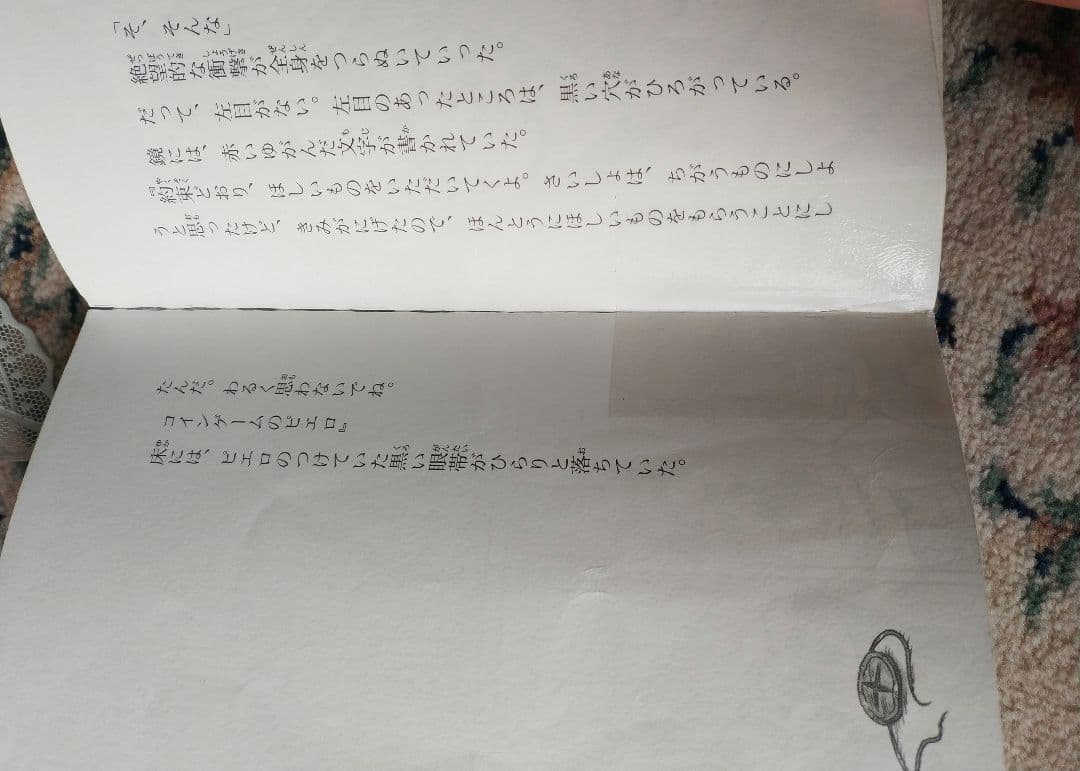 「そ、そんな」
絶望的な衝撃が全身をつらぬいていった。
だって、左目がない。左目のあったところは、黒い穴がひろがっている。
鏡には、赤いゆがんだ文字が書かれていた。
『約束どおり、ほしいものをいただいてくよ。さいしょは、ちがうものにしよ
うと思ったけど、きみがにげたので、ほんとうにほしいものをもらうことにし
たんだ。わるく思わないでね。
コインゲームのピエロ』
床には、ピエロのつけていた黒い眼帯がひらりと落ちていた。